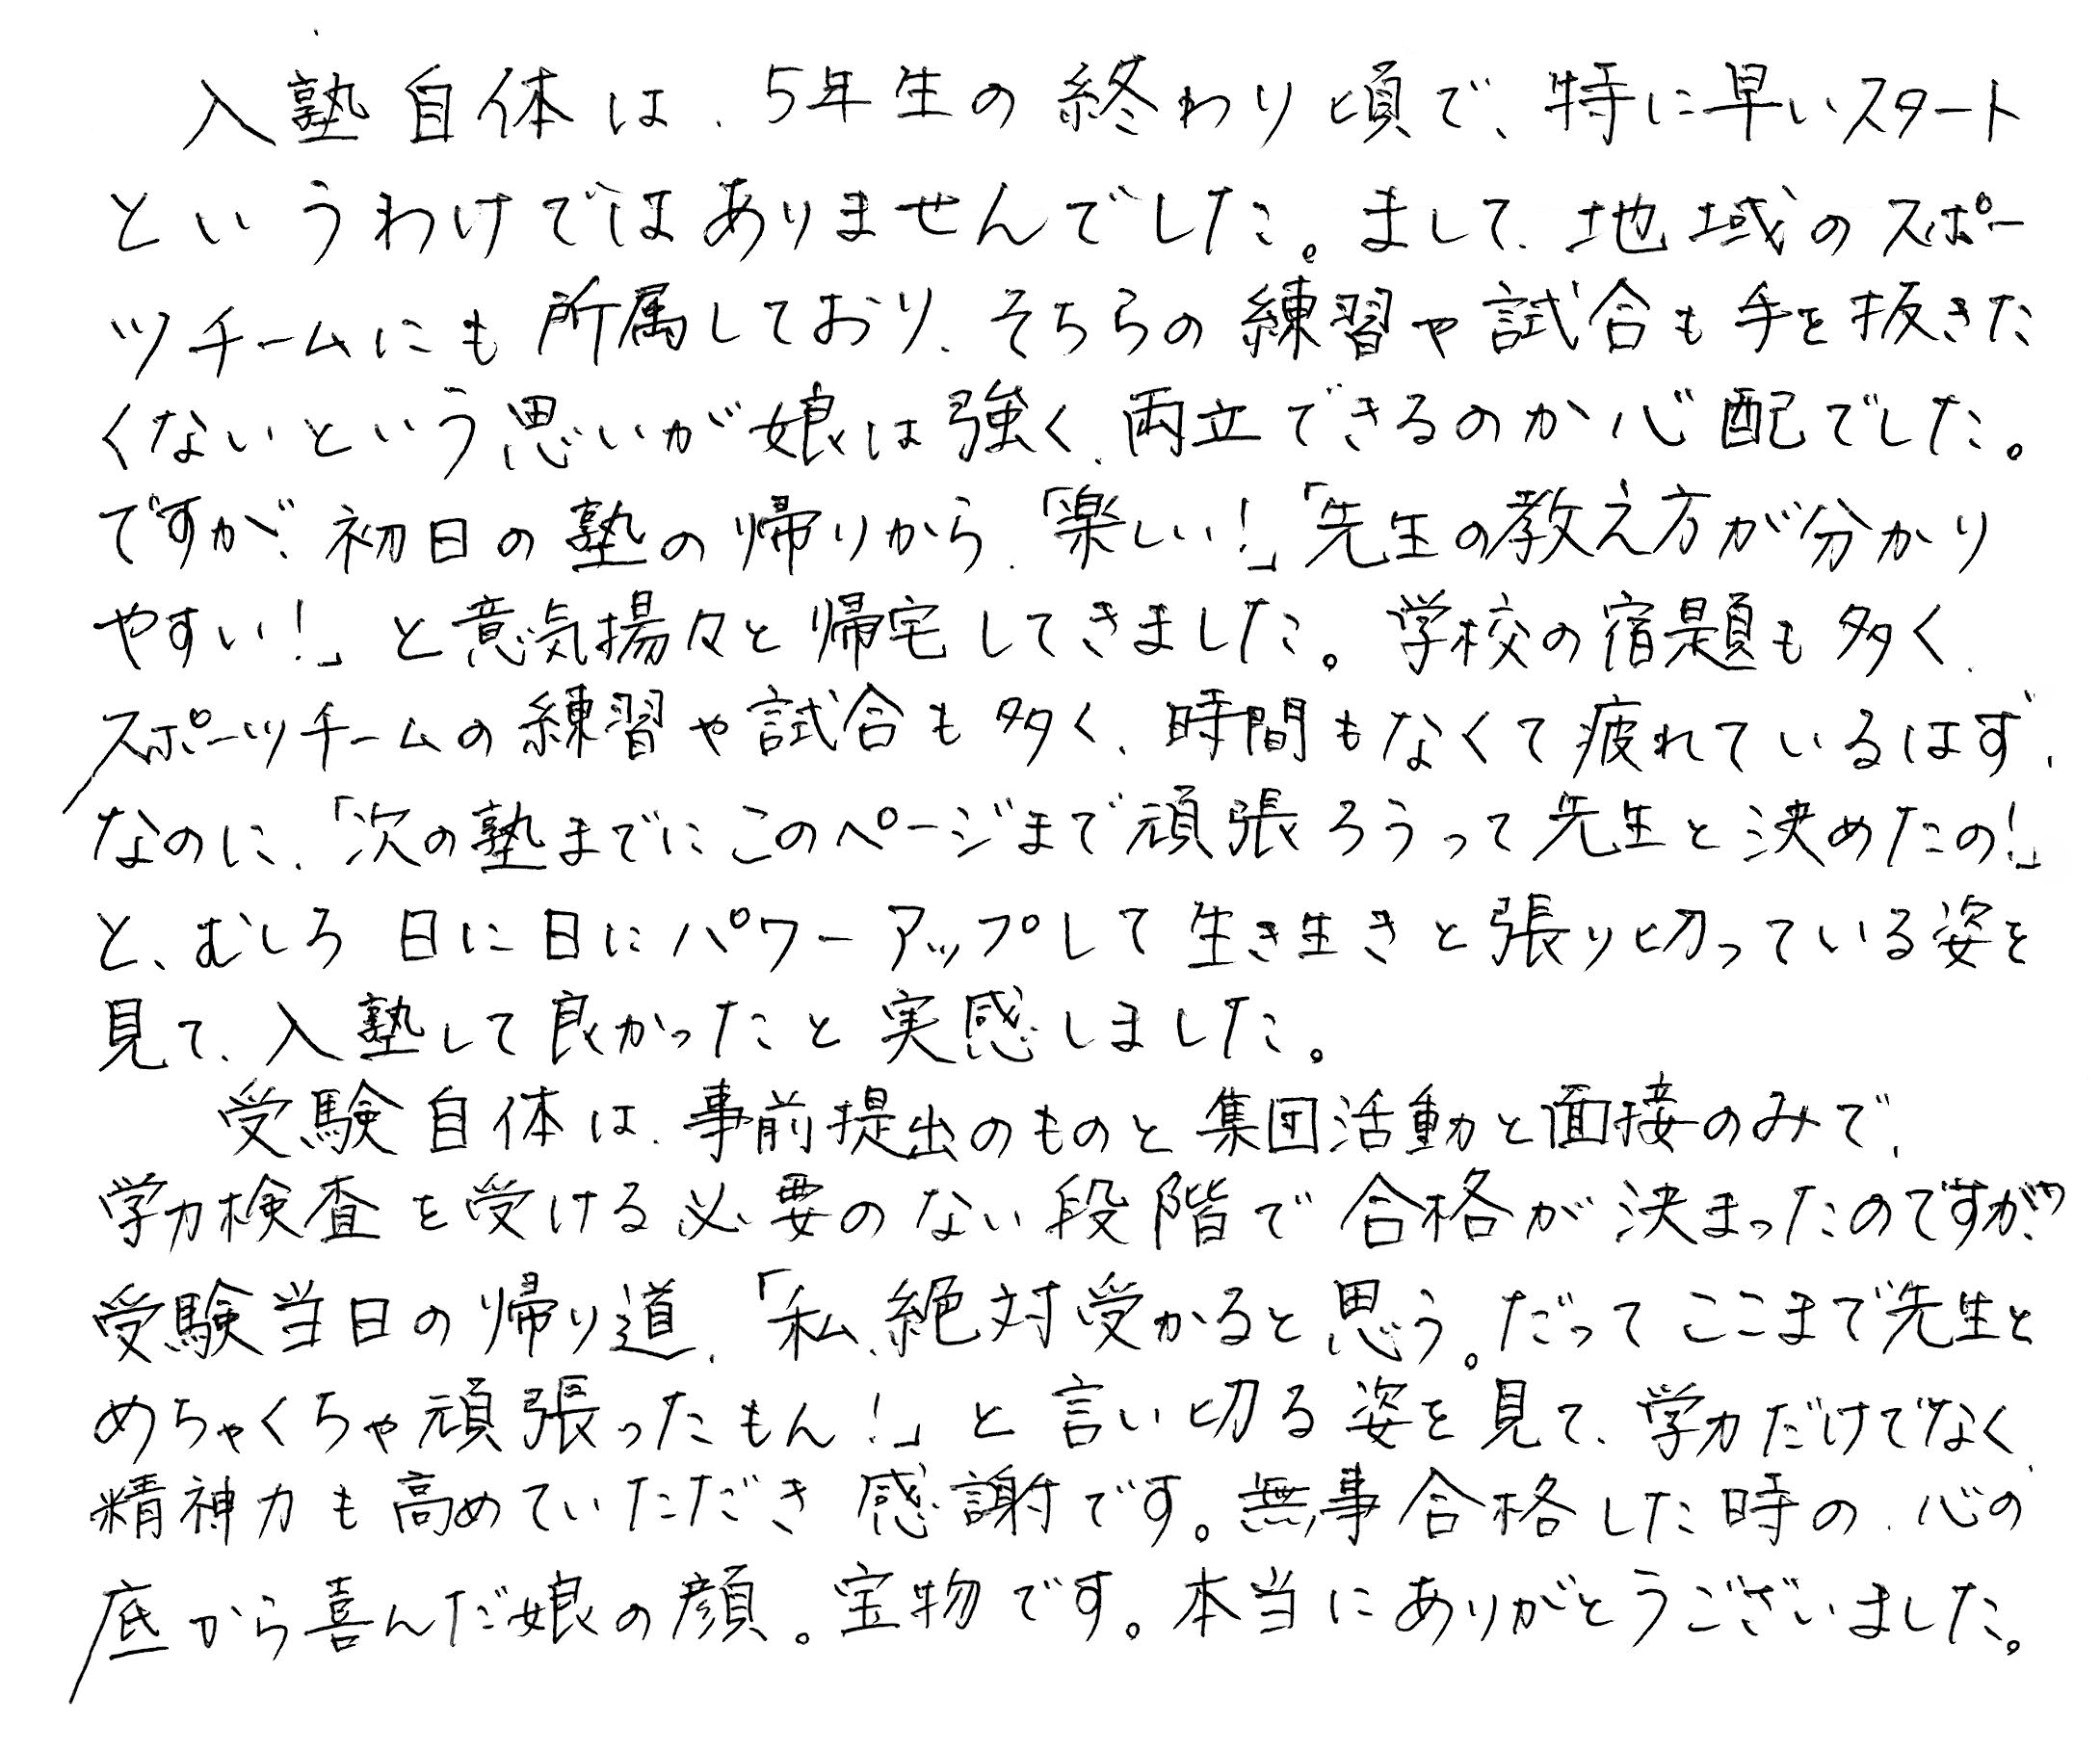 入塾自体は、5年生の終わり頃で、特に早いスタート
というわけではありませんでした。まして、地域のスポー
ツチームにも所属しており、そちらの練習や試合も手を抜きた
くないという思いが娘は強く、両立できるのか心配でした。
ですが、初日の塾の帰りから、「楽しい!」「先生の教え方が分かり
やすい!」と意気揚々と帰宅してきました。学校の宿題も多く、
スポーツチームの練習や試合も多く、時間もなくて疲れているはず、
なのに、「次の塾までにこのページまで頑張ろうって先生と決めたの!」
と、むしろ日に日にパワーアップして生き生きと張り切っている姿を
見て、入塾して良かったと実感しました。
受験自体は、事前提出のものと集団活動と面接のみで、
学力検査を受ける必要のない段階で合格が決まったのですが、
受験当日の帰り道、「私、絶対受かると思う。だってここまで先生と
めちゃくちゃ頑張ったもん!」と言い切る姿を見て、学力だけでなく
精神力も高めていただき感謝です。無事合格した時の、心の
底から喜んだ娘の顔。宝物です。本当にありがとうございました。